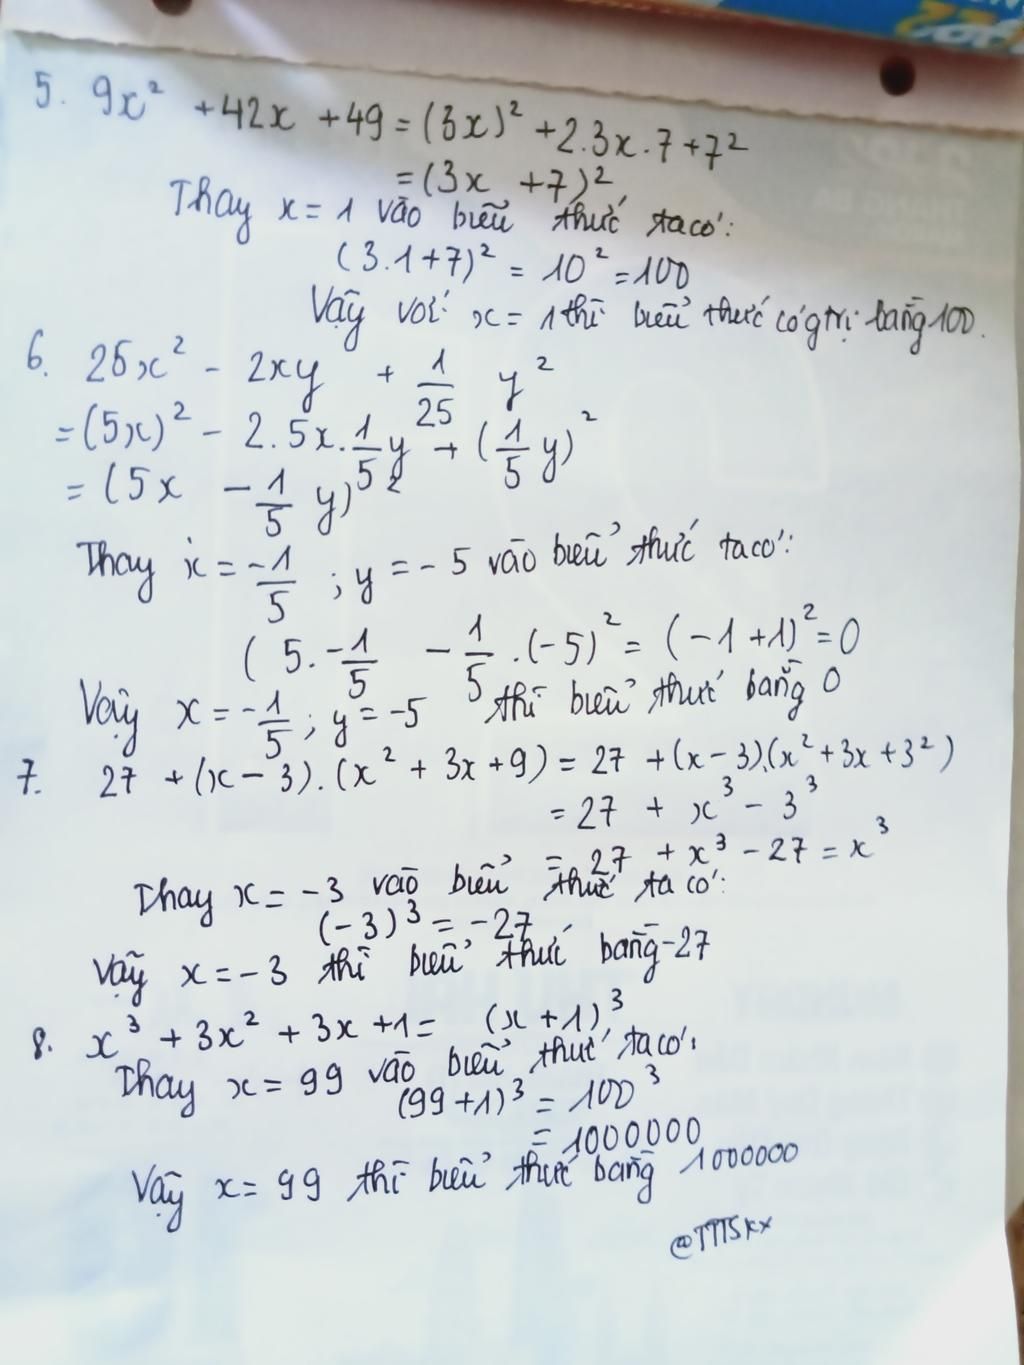 5. 9x² + 42x + 49 = (3x)² + 2.3x.7 + 7²
= (3x + 7)²
Thay x = 1 vào biểu thức ta có:
(3.1+7)² = 10² = 100
Vậy với x = 1 thì biểu thức có gtrị bằng 100.
6. 25x² - 2xy + 1/25 y²
= (5x)² - 2.5x.1/5y + (1/5 y)²
= (5x - 1/5 y)²
Thay x = -1/5 ; y = -5 vào biểu thức ta có:
(5.-1/5 - 1/5.(-5)² = (-1+1)² = 0
Vậy x = -1/5 ; y = -5 thì biểu thức bằng 0
7. 27 + (x - 3).(x² + 3x + 9) = 27 + (x - 3).(x² + 3x + 3²)
= 27 + x³ - 3³
= 27 + x³ - 27 = x³
Thay x = -3 vào biểu thức ta có:
(-3)³ = -27
Vậy x = -3 thì biểu thức bằng -27
8. x³ + 3x² + 3x + 1 = (x + 1)³
Thay x = 99 vào biểu thức ta có:
(99+1)³ = 100³
= 1000000
Vậy x = 99 thì biểu thức bằng 1000000
@TTTSkx